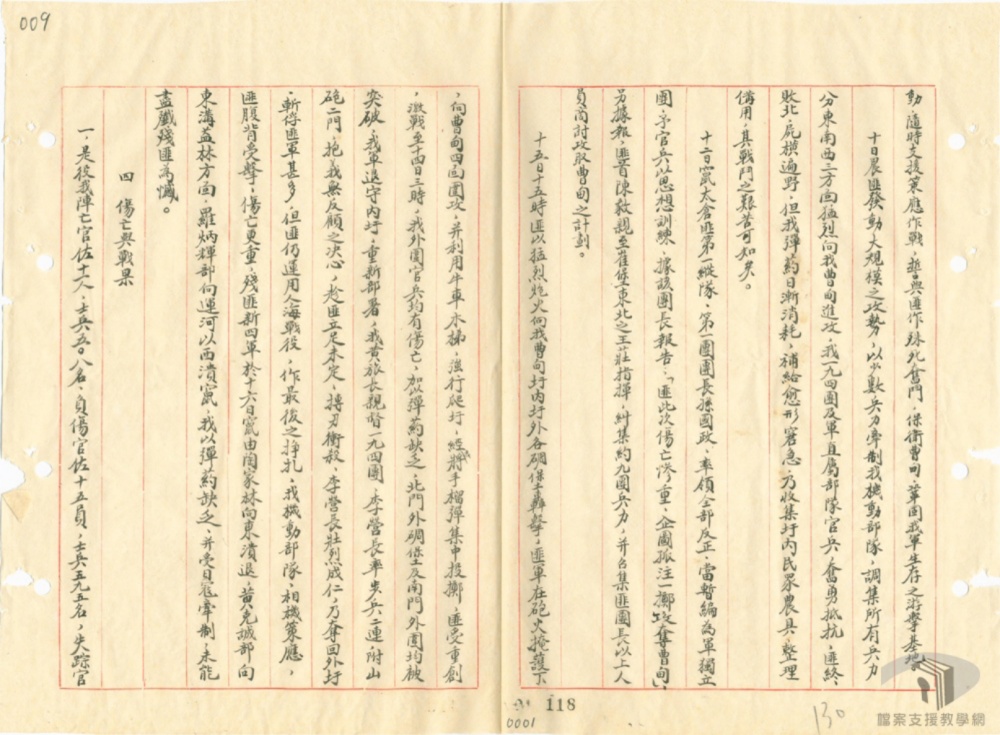 009
動隨時支援策應作戰，誓與匪作殊死奮鬥，保衛曹甸，鞏固我軍生存之游擊基地。
十日晨匪發動大規模之攻勢，以少數兵力牽制我機動部隊，調集所有兵力
分東南西三方面猛烈向我曹甸進攻，我一九四團及軍直屬部隊官兵，奮勇抵抗，匪終
敗北，屍橫遍野，但我彈葯日漸消耗，補給愈形窘急，乃收集圩內民眾農具，整理
備用，其戰鬥之艱苦可知矣。
十二日竄太倉匪第一縱隊，第一團團長孫國政，率領全部反正，當暫編為軍獨立
團，予官兵以思想訓練，據該團長報告：「匪此次傷亡慘重，企圖孤注一擲攻奪曹甸」，
另據報，匪酋陳毅親至崔堡東北之王莊指揮，糾集約九團兵力，并召集匪團長以上人
員商討攻取曹甸之計劃。
十五日十五時匪以猛烈炮火向我曹甸圩內圩外各碉堡轟擊，匪軍在砲火掩護下
，向曹甸四面圍攻，并利用牛車木梯，強行爬圩，經我手榴彈集中投擲，匪受重創
，激戰至十四日三時，我外圍官兵均有傷亡，加以彈葯缺乏，北門外碉堡及南門外圍均被
突破，我軍退守內圩，重新部署，我黃旅長親督一九四團，李營長率步兵二連附山
砲二門，抱義無反顧之決心，趁匪立足未定，搏刃衝殺，李營長壯烈成仁，乃奪回外圩
，斬俘匪軍甚多，但匪仍運用人海戰役，作最後之掙扎，我機動部隊，相機策應，
匪腹背受擊，傷亡更重，殘匪新四軍於十六日竄由陶家林向東潰退，黃克誠部向
東溝益林方面，羅炳輝部向運河以西潰竄，我以彈葯缺乏，并受日寇牽制，未能
盡殲殘匪為憾。
四　傷亡與戰果
一、是役我陣亡官佐十六人，士兵五〇八名，負傷官佐十五員，士兵五九五名，失踪官
118
0001
130
檔案支援教學網